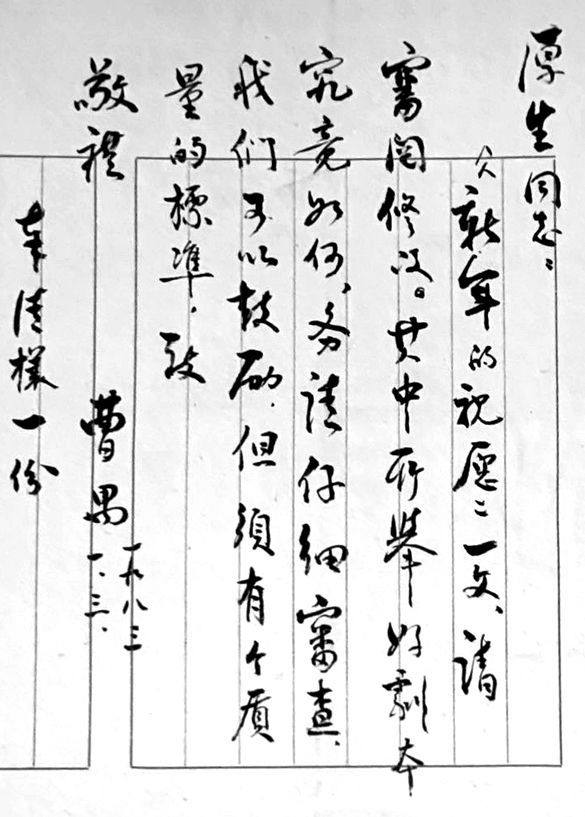 厚生同志：
《新年的祝愿》一文、请
審阅修改。其中所举好剧本
究竟如何、务請仔细審查、
我们可以鼓励.但須有个质
量的標準.致
敬禮
曹禺
一九八三
一.三.
奉清樣一份